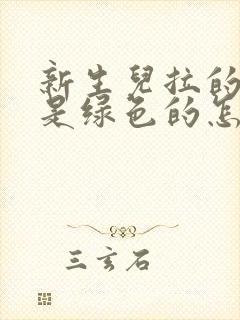 新生兒拉的
是绿色的怎
三玄石